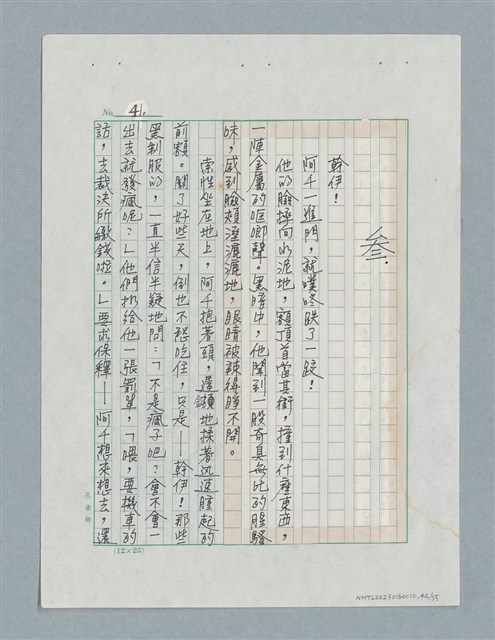 No. 41.
叁.
幹伊!
阿千一進門,就噗咚跌了一跤!
他的臉摔向水泥地,額頂首當其衝,撞到什麼東西,
一陣金屬的哐啷聲。黑暗中,他聞到一股奇臭無比的腥騷
味,感到臉頰溼濂濂地,眼睛被辣得睜不開。
索性坐在地上,阿千抱著頭,邊地揉著迅速腫起的
前額。關了好些天,倒也不愁吃住,只是——幹伊!那些
黑制服的,一直半信半疑地問:「不是瘋子吧?會不會一
出去就發瘋呢?」他們扔給他一張罰單,「喂,要機車的
訪,去裁決所繳錢啦。」要求保釋——阿千想來想去,還
(12×25)
NMTL20230160010,42/55